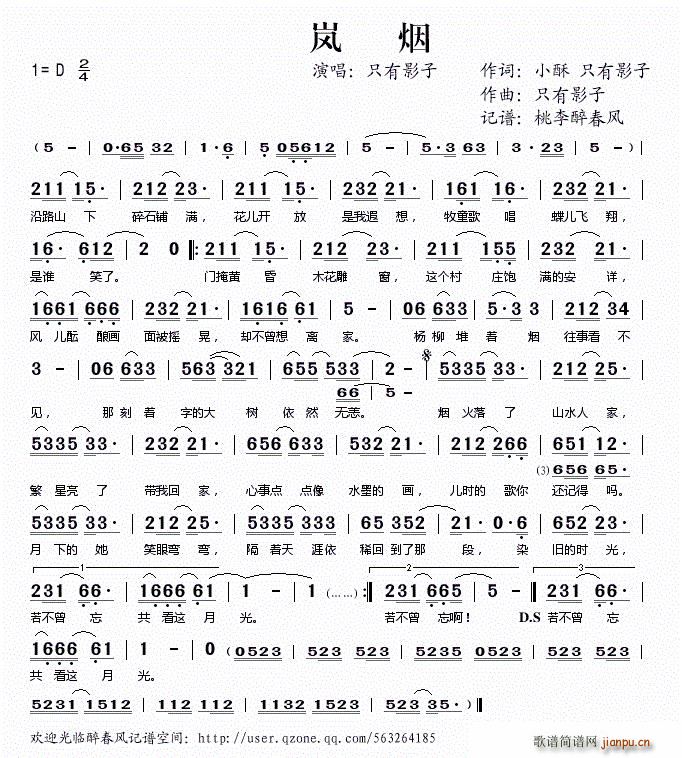 岚 烟
1= D 2/4 演唱：只有影子 作词：小酥 只有影子
作曲：只有影子
记谱：桃李醉春风
( 5 - | 0·65 32 | 1·6 | 5 05612 | 5 - | 5·3 63 | 3·23 | 5 - ) |
211 15· | 212 23· | 211 15· | 212 23· | 161 16· | 232 21· |
沿路山 下 碎石铺 满， 花儿开 放 是我遐 想， 牧童歌 唱 蝶儿飞 翔，
16· 612 | 2 0 |: 211 15· | 212 23· | 211 155 | 232 21· |
是谁 笑了。 门掩黄 昏 木花雕 窗， 这个村 庄饱 满的安 详，
1661 666 | 232 21· | 1616 61 | 5 - | 06 633 | 5·3 3 | 212 34 |
风 儿酝 酿画 面被摇 晃， 却不曾想 离 家。 杨 柳 堆 着 烟 往事看 不
3 - | 06 633 | 563 321 | 655 533 | 2 - | 5335 33· | 232 25· |
66 | 5 -
见， 那 刻 着 字的大 树 依 然 无恙。 烟 火落 了 山水人 家，
5335 33· | 232 21· | 656 633 | 532 21· | 212 266 | 651 12· |
(3) 656 65·
繁 星亮 了 带我回 家， 心事点 点像 水墨的 画， 儿时的 歌你 还记得 吗。
5335 33· | 212 25· | 5335 335 | 65 352 | 21· 0·6 | 652 23· |
月 下的 她 笑眼弯 弯， 隔 着天 涯依 稀回 到了那 段， 染 旧的时 光，
1 2 3
231 66· | 1666 61 | 1 - | 1 - | (……) :| 231 665 | 5 - :| 231 66· |
若不曾 忘 共 看这 月 光。 若不曾 忘啊！ D.S 若不曾 忘
1666 61 | 1 - | 0 (0523 | 523 523 | 5235 0523 | 523 523 |
共 看这 月 光。
5231 1512 | 112 112 | 1132 1512 | 1653 523 | 523 35· )|
欢迎光临醉春风记谱空间：http://user.qzone.qq.com/563264185
歌谱简谱网 jianpu.cn